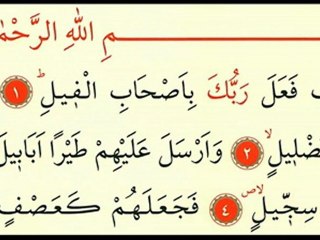 مِ اللهِ الرَّحْمٰ
فَعَلَ رَبُّكَ بِاَصْحَابِ الْفٖيلِۜ ١
ضْلٖيلٍۙ ٢ وَاَرْسَلَ عَلَيْهِمْ طَيْرًا اَبَابٖيلَ
سِجّٖيلٍۙ ٤ فَجَعَلَهُمْ كَعَصْفٍ